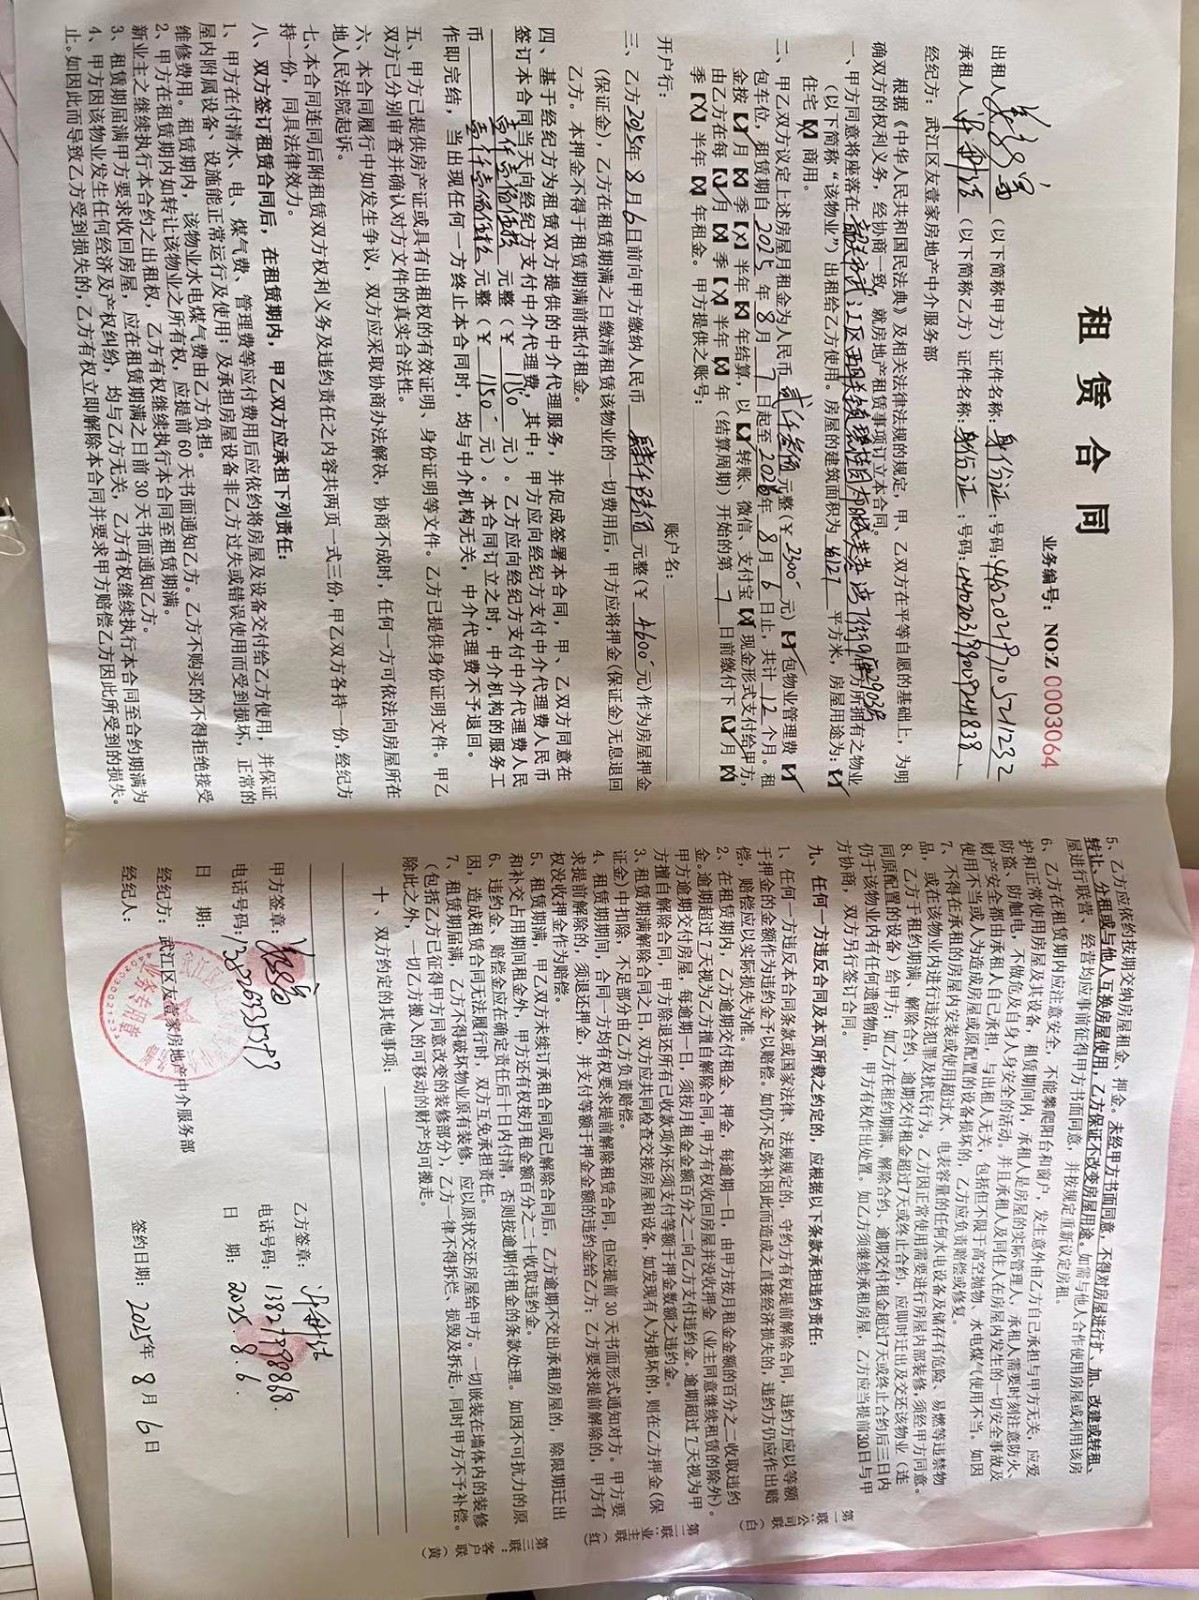 租赁合同
业务编号：NO:Z 0003064
出租人（以下简称甲方）证件名称：身份证：号码：
承租人（以下简称乙方）证件名称：身份证：号码：
经纪方：武江区友壹家房地产中介服务部
根据《中华人民共和国民法典》及相关法律法规的规定，甲、乙双方在平等自愿的基础上，为明
确双方的权利义务，经协商一致，就房地产租赁事项订立本合同。
一、甲方同意将座落在韶关市武江区西联镇 甲方所拥有之物业
（以下简称“该物业”）出租给乙方使用。房屋的建筑面积为 平方米，房屋用途为：【√】
住宅【X】商用。
二、甲乙双方议定上述房屋月租金为人民币贰仟叁佰元整（￥2300 元）【√】包物业管理费【√】
包车位，租赁期自2025年8月7日起至2026年8月6日止，共计12个月。租
金按【√】月【X】季【X】半年【X】年结算，以【√】转账、微信、支付宝【X】现金形式支付给甲方，
由乙方在每【√】月【X】季【X】半年【X】年（结算周期）开始的第7日前缴付下【√】月【X】
季【X】半年【X】年租金。甲方提供之账号：
开户行： 账户名：
三、乙方2025年8月6日前向甲方缴纳人民币肆仟陆佰元整（￥4600 元）作为房屋押金
（保证金），乙方在租赁期满之日缴清租赁该物业的一切费用后，甲方应将押金（保证金）无息退回
乙方。本押金不得于租赁期满前抵付租金。
四、基于经纪方为租赁双方提供的中介代理服务，并促成签署本合同，甲、乙双方同意在
签订本合同当天向经纪方支付中介代理费，其中：甲方应向经纪方支付中介代理费人民币
壹仟壹佰伍拾元整（￥1150 元）。乙方应向经纪方支付中介代理费人民
币壹仟壹佰伍拾元整（￥1150 元）。本合同订立之时，中介机构的服务工
作即完结，当出现任何一方终止本合同时，均与中介机构无关，中介代理费不予退回。
五、甲方已提供房产证或具有出租权的有效证明、身份证明等文件。乙方已提供身份证明文件。甲乙
双方已分别审查并确认对方文件的真实合法性。
六、本合同履行中如发生争议，双方应采取协商办法解决，协商不成时，任何一方可依法向房屋所在
地人民法院起诉。
七、本合同连同后附租赁双方权利义务及违约责任之内容共两页一式三份，甲乙双方各持一份，经纪方
持一份，同具法律效力。
八、双方签订租赁合同后，在租赁期内，甲乙双方应承担下列责任：
1、甲方在付清水、电、煤气费、管理费等应付费用后应依约将房屋及设备交付给乙方使用，并保证
屋内附属设备、设施能正常运行及使用；及承担房屋设备非乙方过失或错误使用而受到损坏，正常的
维修费用。租赁期内，该物业水电煤气费由乙方负担。
2、甲方在租赁期内如转让该物业之所有权，应提前60天书面通知乙方。乙方不购买的不得拒绝接受
新业主之继续执行本合约之出租权，乙方有权继续执行本合同至租赁期满。
3、租赁期届满甲方要求收回房屋，应在租赁期满之日前30天书面通知乙方。
4、甲方因该物业发生任何经济及产权纠纷，均与乙方无关，乙方有权继续执行本合同至合约期满为
止。如因此而导致乙方受到损失的，乙方有权立即解除本合同并要求甲方赔偿乙方因此所受到的损失。
5、乙方应依约按期交纳房屋租金、押金。未经甲方书面同意，不得对房屋进行扩、加、改建或转租、
转让、分租或与他人互换房屋使用，乙方保证不改变房屋用途。如需与他人合作使用房屋或利用该房
屋进行联营、经营均应事前征得甲方书面同意，并按规定重新议定房租。
6、乙方在租赁期内应注意安全，不能攀爬阳台和窗户，发生意外由乙方自己承担与甲方无关，应爱
护和正常使用房屋及其设备，租赁期间内，承租人是房屋的实际管理人、承租人需要时刻注意防火、
防盗、防触电，不做危及自身人身安全的活动，并且承租人及同住人在房屋内发生的一切安全事故及
财产安全都由承租人自己承担，与出租人无关，包括但不限于高空抛物、水电煤气使用不当。如因
使用不当或人为造成房屋或原配置的设备损坏的，乙方应负责赔偿或修复。
7、不得在承租的房屋内安装或使用超过水、电表容量的任何水电设备及储存有危险、易燃等违禁物
品，或在该物业内进行违法犯罪及扰民行为。乙方因正常使用需要进行房屋内部装修，须经甲方同意。
8、乙方于租约期满、解除合约、逾期交付租金超过7天或终止合约，应即时迁出及交还该物业（连
同原配置的设备）给甲方；如乙方在租约期满、解除合约、逾期交付租金超过7天或终止合约后三日内
仍于该物业内有任何遗留物品，甲方有权作出处置。如乙方须继续承租房屋，乙方应当提前30日与甲
方协商，双方另行签订合同。
九、任何一方违反合同及本页所载之约定的，应根据以下条款承担违约责任：
1、任何一方违反本合同条款或国家法律、法规规定的，守约方有权提前解除合同，违约方应以等额
于押金的金额作为违约金予以赔偿。如仍不足弥补因此而造成之直接经济损失的，违约方仍应作出赔
偿，赔偿应以实际损失为准。
2、在租赁期内，乙方逾期交付租金、押金，每逾期一日，由甲方按月租金金额的百分之二收取违约
金。逾期超过7天视为乙方擅自解除合同，甲方有权收回房屋并没收押金（业主同意继续租赁的除外）。
甲方逾期交付房屋，每逾期一日，须按月租金金额百分之二向乙方支付违约金。逾期超过7天视为甲
方擅自解除合同，甲方除退还所有已收款项外还须支付等额于押金数额之违约金。
3、租赁期满解除合同之日，双方应共同检查交接房屋和设备，如发现有人为损坏的，则在乙方押金（保
证金）中扣除，不足部分由乙方负责赔偿。
4、租赁期期间，合同一方均有权要求提前解除租赁合同，但应提前30天书面形式通知对方。甲方要
求提前解除的，须退还押金，并支付等额于押金金额的违约金给乙方；乙方要求提前解除的，甲方有
权没收押金作为赔偿。
5、租赁期满，甲乙双方未续订承租合同或已解除合同后，乙方逾期不交出承租房屋的，除限期迁出
和补交占用期间租金外，甲方还有权按月租金额百分之二十收取违约金。
6、违约金、赔偿金应在确定责任后十日内付清，否则按逾期付租金的条款处理。如因不可抗力的原
因，造成租赁合同无法履行时，双方互免承担责任。
7、租赁期届满，乙方不得破坏物业原有装修，应以原状交还房屋给甲方。一切嵌装在墙体内的装修
（包括乙方已征得甲方同意改变的装修部分），乙方一律不得拆烂、损毁及拆走，同时甲方不予补偿。
除此之外，一切乙方搬入的可移动的财产均可搬走。
十、双方约定的其他事项：
甲方签章： 乙方签章：
电话号码： 电话号码：13827998868.
日 期： 日 期：2025.8.6.
经纪方：武江区友壹家房地产中介服务部
经纪人： 签约日期：2025年8月6日
第一联：公司（白）
第二联：业主（红）
第三联：客户（黄）